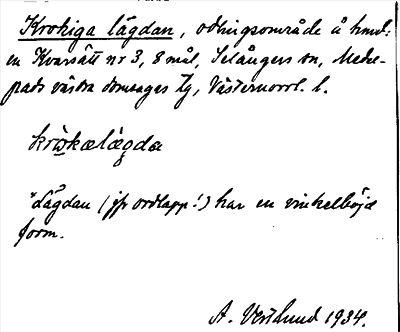 Krokiga lägdan, odlingsområde å hmd:
en Kvarsätt nr 3, 8 mål, Selångers sn, Mede-
pads västra domsagas tg, Västernorrl. l.
krωkælægda
"Lägdan (jfr ordlapp!) har en vinkelböjd
form.
A. Vestlund 1934.